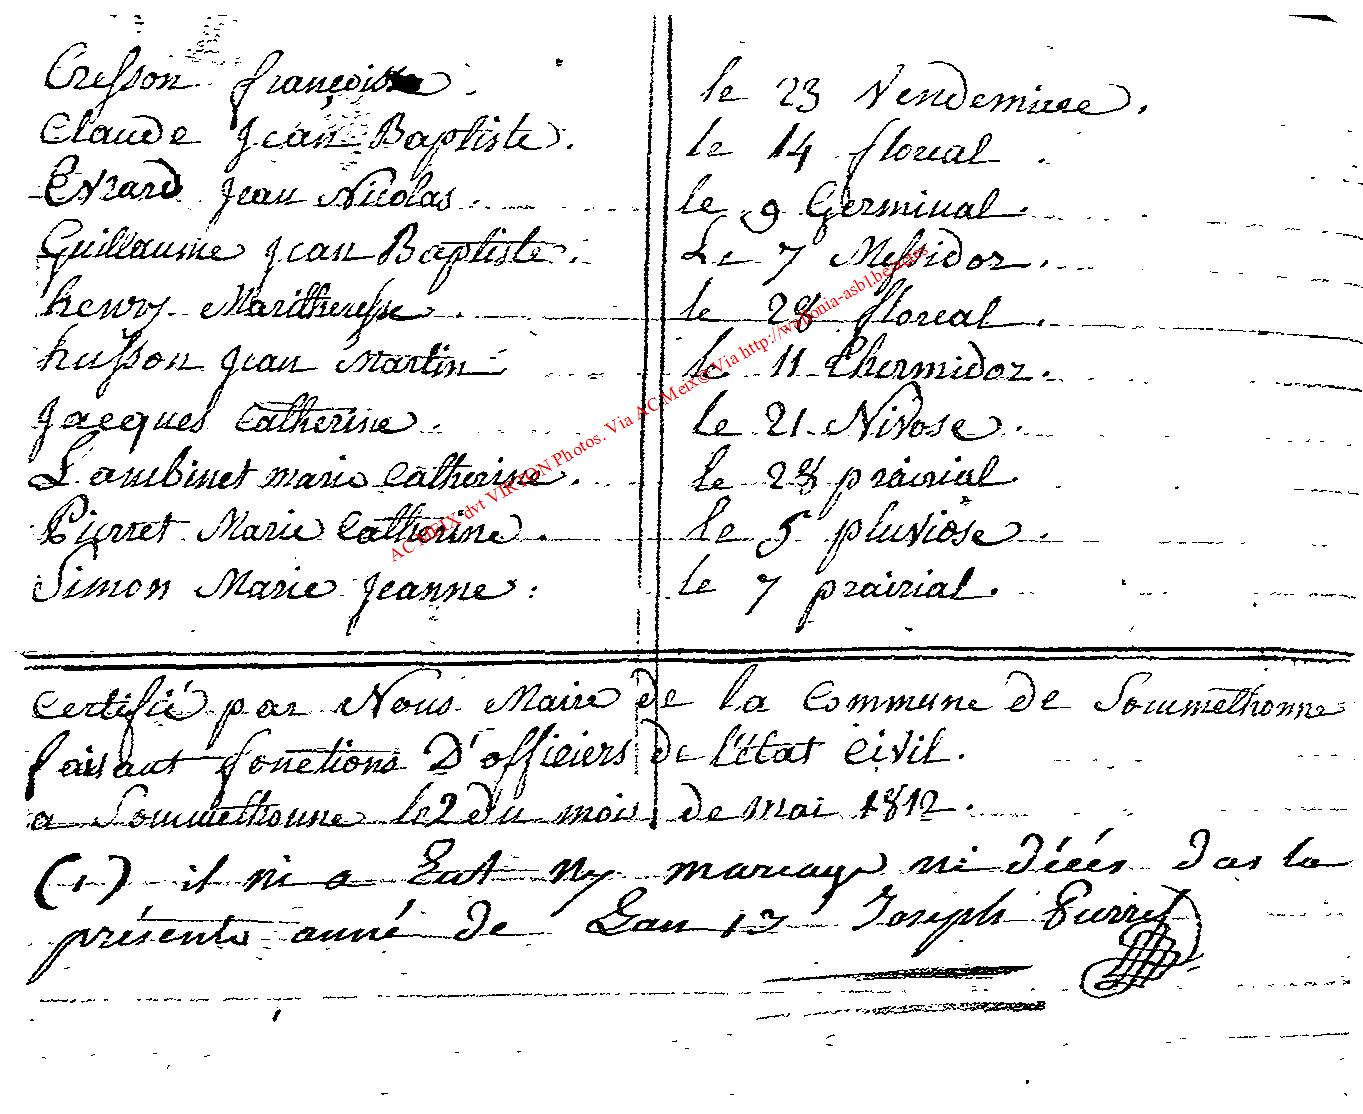 Cresson françoise. le 23 Vendemiere.
Claude Jean Baptiste. le 14 floreal.
Evrard Jean Nicolas. le 9 Germinal.
Guillaume Jean Baptiste. Le 7 Messidor.
henry Maritheresse. le 28 floreal.
husson Jean Martin le 11 Thermidor.
Jacques Catherine. le 21 Nivose.
Lambinet marie Catherine. le 28 prairial.
Pierret Marie Catherine. le 5 pluviôse.
Simon Marie Jeanne. le 7 prairial.
AC MEIX dvt VIRTON Photos. Via AC Meix© Via http://wallonia-asbl.be
certifié par Nous Maire de la Commune de Sommethonne
faisant fonctions D'officiers de l'état Civil.
a Sommethonne le 2 du mois de mai 1812.
(1) il ni a Eut ny mareage ni décés das la
présente anné de Lan 13 Joseph Pierret